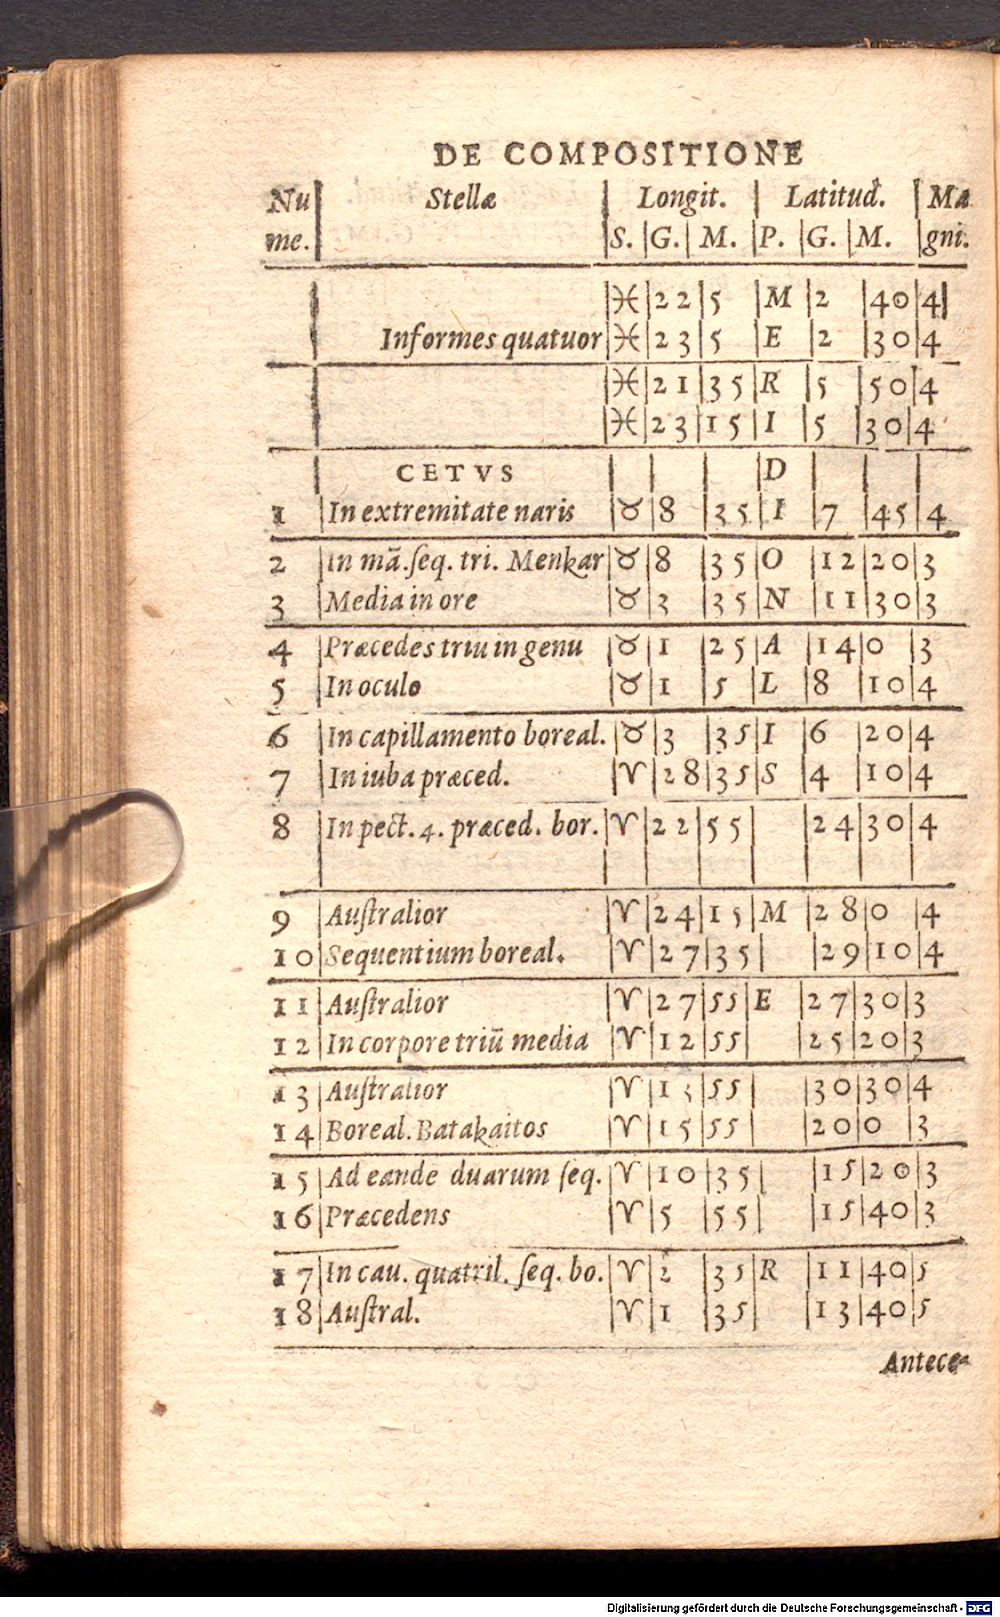 DE COMPOSITIONE
Nu | Stellæ | Longit. | Latitud. | Ma
me. | | S. | G. | M. | P. | G. | M. | gni.
| | ♓ | 22 | 5 | M | 2 | 40 | 4
| Informes quatuor | ♓ | 23 | 5 | E | 2 | 30 | 4
| | ♓ | 21 | 35 | R | 5 | 50 | 4
| | ♓ | 23 | 15 | I | 5 | 30 | 4
| CETVS | | | | D | | |
1 | In extremitate naris | ♉ | 8 | 35 | I | 7 | 45 | 4
2 | In mā.ſeq. tri. Menkar | ♉ | 8 | 35 | O | 12 | 20 | 3
3 | Media in ore | ♉ | 3 | 35 | N | 11 | 30 | 3
4 | Præcedes triu in genu | ♉ | 1 | 25 | A | 14 | 0 | 3
5 | In oculo | ♉ | 1 | 5 | L | 8 | 10 | 4
6 | In capillamento boreal. | ♉ | 3 | 35 | I | 6 | 20 | 4
7 | In iuba præced. | ♈ | 28 | 35 | S | 4 | 10 | 4
8 | In pect. 4. præced. bor. | ♈ | 22 | 55 | | 24 | 30 | 4
9 | Auſtralior | ♈ | 24 | 15 | M | 28 | 0 | 4
10 | Sequentium boreal. | ♈ | 27 | 35 | | 29 | 10 | 4
11 | Auſtralior | ♈ | 27 | 55 | E | 27 | 30 | 3
12 | In corpore triū media | ♈ | 12 | 55 | | 25 | 20 | 3
13 | Auſtralior | ♈ | 13 | 55 | | 30 | 30 | 4
14 | Boreal. Batakaitos | ♈ | 15 | 55 | | 20 | 0 | 3
15 | Ad eande duarum ſeq. | ♈ | 10 | 35 | | 15 | 20 | 3
16 | Præcedens | ♈ | 5 | 55 | | 15 | 40 | 3
17 | In cau. quatril. ſeq. bo. | ♈ | 2 | 35 | R | 11 | 40 | 5
18 | Auſtral. | ♈ | 1 | 35 | | 13 | 40 | 5
Antece-
Digitalisierung gefördert durch die Deutsche Forschungsgemeinschaft - DFG